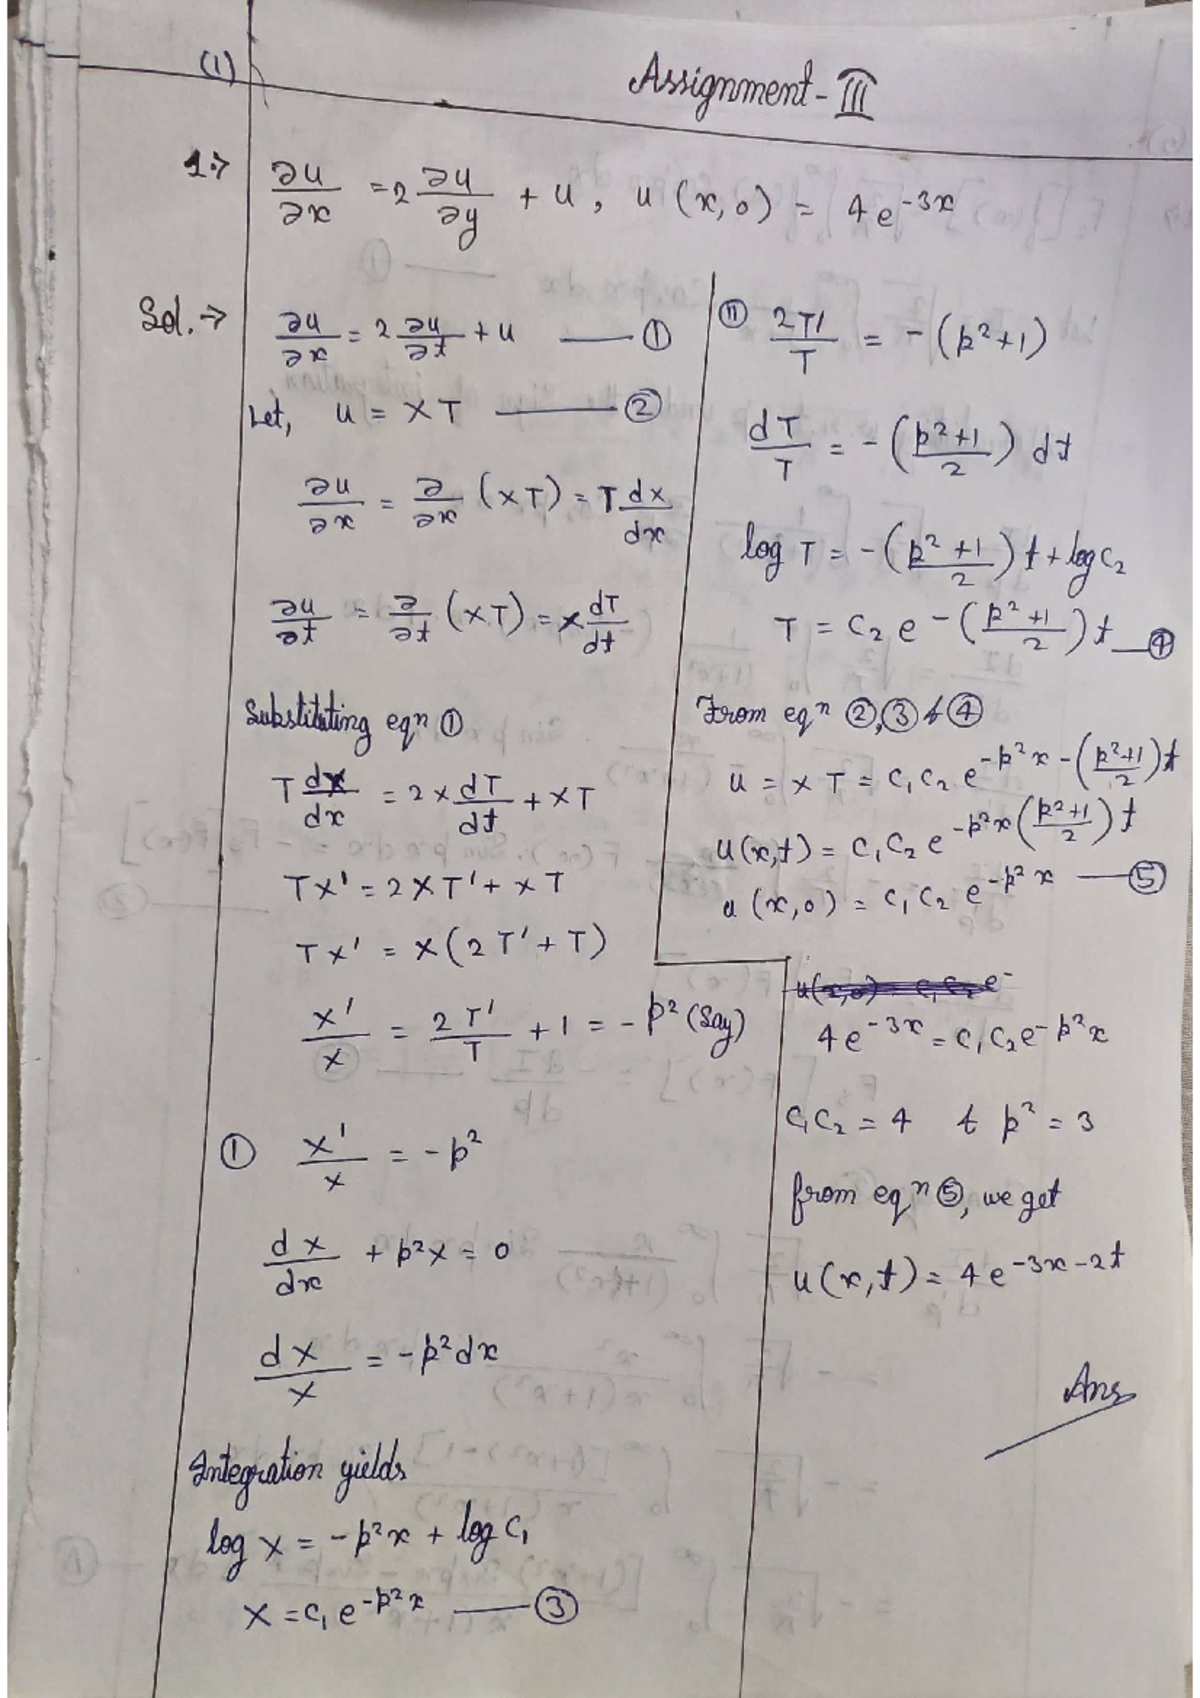 (1)
Assignment-III
1.→ ∂u/∂x = 2 ∂u/∂y + u, u(x,0) = 4e^-3x
Sol.→ ∂u/∂x = 2 ∂u/∂t + u —— ①
Let, u = XT —— ②
∂u/∂x = ∂/∂x (XT) = T dX/dx
∂u/∂t = ∂/∂t (XT) = X dT/dt
Substituting eqn ①
T dX/dx = 2X dT/dt + XT
TX' = 2XT' + XT
TX' = X(2T' + T)
X'/X = 2T'/T + 1 = -p² (Say)
① X'/X = -p²
dX/dx + p²X = 0
dX/X = -p²dx
Integration yields
log X = -p²x + log C₁
X = C₁e^-p²x —— ③
⑪ 2T'/T = -(p²+1)
dT/T = -(p²+1/2) dt
log T = -(p²+1/2)t + log C₂
T = C₂ e^-(p²+1/2)t —— ④
From eqn ②,③ & ④
u = XT = C₁C₂ e^-p²x-(p²+1/2)t
u(x,t) = C₁C₂ e^-p²x(p²+1/2)t
u(x,0) = C₁C₂ e^-p²x —— ⑤
4e^-3x = C₁C₂e^-p²x
C₁C₂ = 4 & p² = 3
from eqn ⑤, we get
u(x,t) = 4e^-3x-2t
Ans